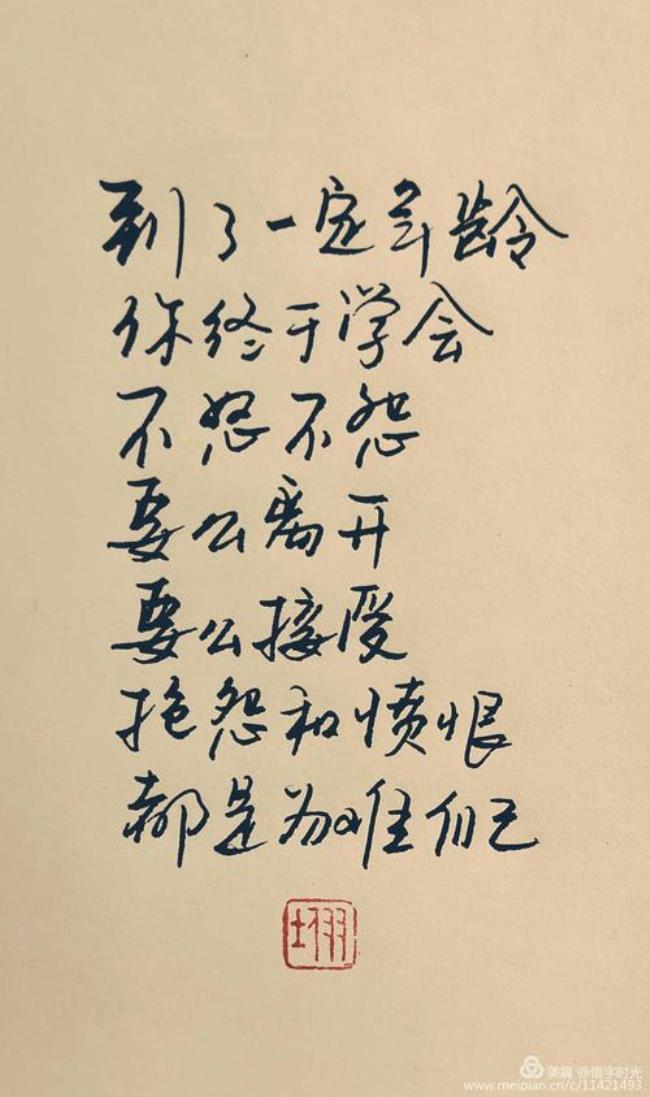 到了一定年龄
你终于学会
不怒不怨
要么离开
要么接受
抱怨和愤恨
都是为难自己
美篇 @惜字时光
www.meipian.cn/c/11421493